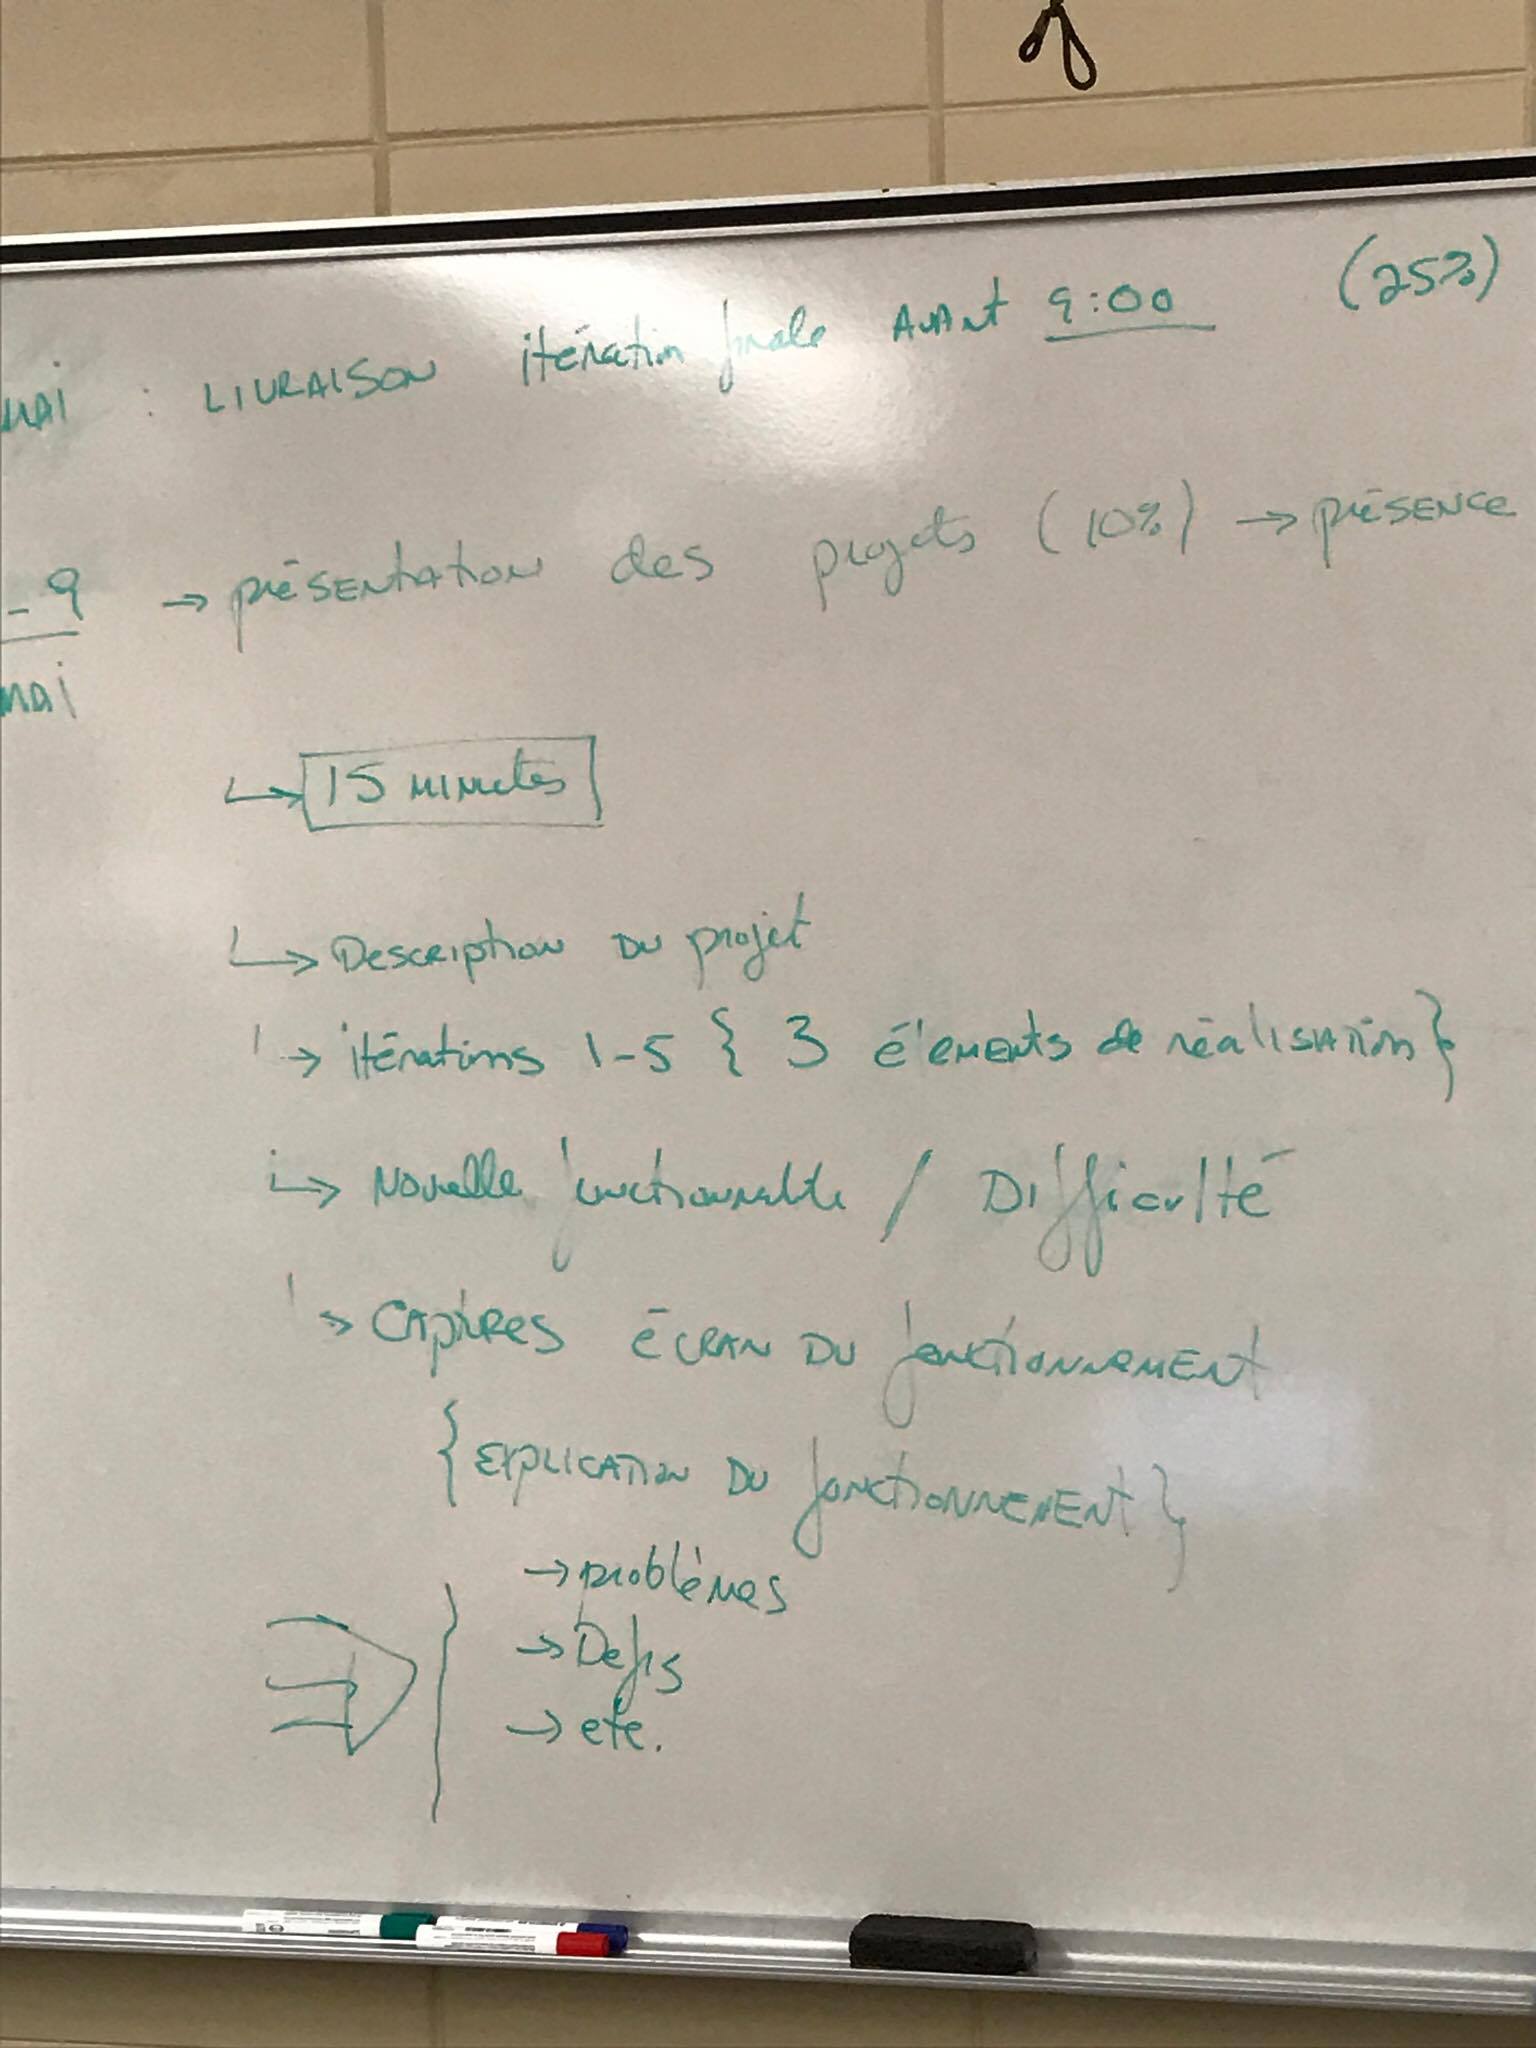 mai : LIVRAISON itération finale AVANT 9:00 (25%)
- 9 → présentation des projets (10%) → présence
mai
↳ 15 minutes
↳ Description du projet
→ itérations 1-5 { 3 éléments de réalisation }
↳ Nouvelle fonctionnalité / Difficulté
→ Captures écran du fonctionnement
{ explication du fonctionnement }
→ problèmes
→ Defis
→ etc.